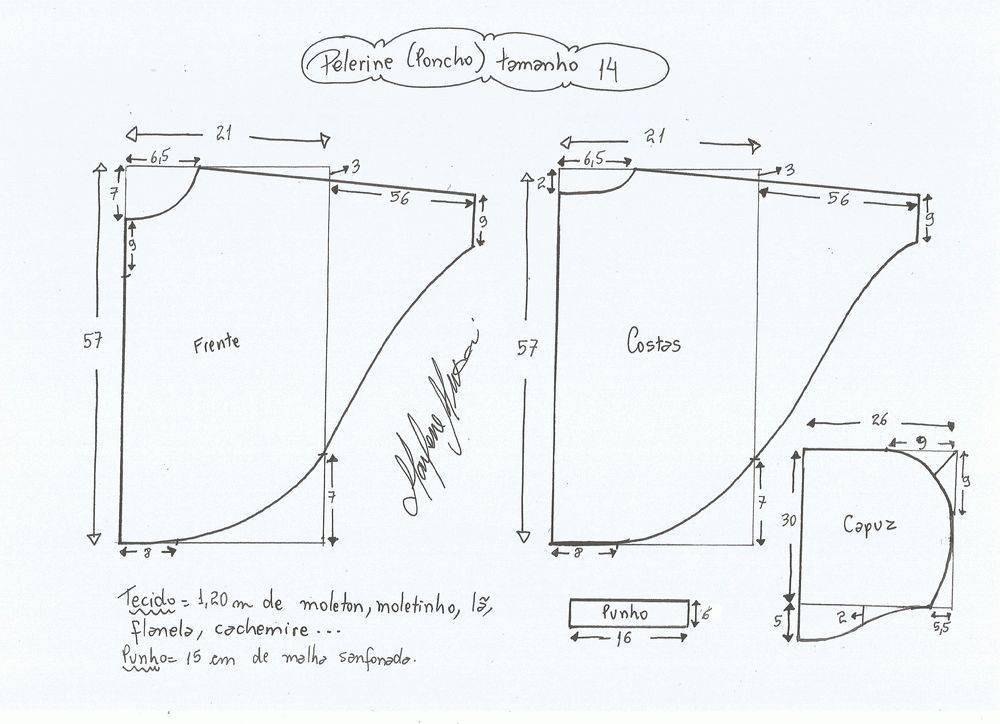 Pelerine (Poncho) tamanho 14
21
6,5
3
7
56
9
9
57
Frente
7
8
21
6,5
3
2
56
9
57
Costas
7
8
26
9
9
30
Capuz
5
2
5,5
Punho
6
16
Marlene Mukai
Tecido = 1,20 m de moleton, moletinho, lã,
flanela, cachemire ...
Punho = 15 cm de malha sanfonada.